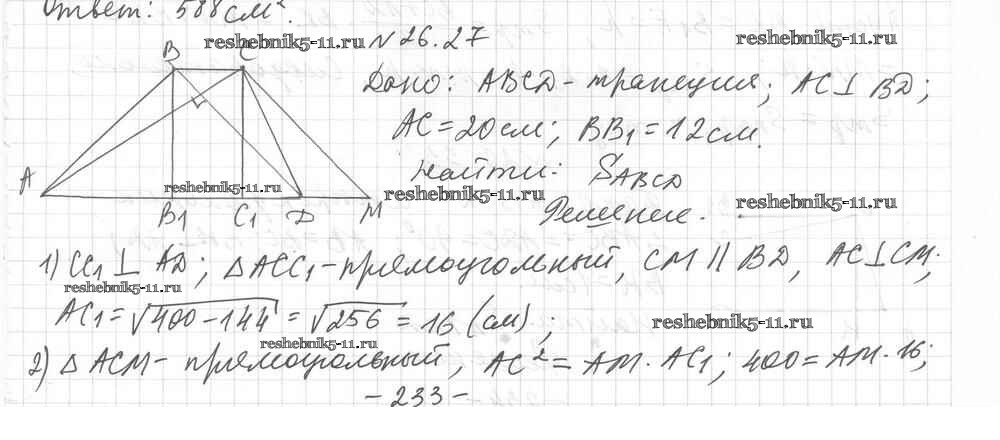 Ответ: 588 см².
reshebnik5-11.ru
N 26.27
reshebnik5-11.ru
B C
Дано: ABCD - трапеция; AC ⊥ BD;
AC = 20 см; BB₁ = 12 см.
Найти: S_ABCD
A
reshebnik5-11.ru
reshebnik5-11.ru
reshebnik5-11.ru
B₁ C₁ D M
Решение.
1) CC₁ ⊥ AD; △ACC₁ - прямоугольный, CM || BD, AC ⊥ CM;
reshebnik5-11.ru
AC₁ = √400-144 = √256 = 16 (см);
reshebnik5-11.ru
reshebnik5-11.ru
2) △ACM - прямоугольный, AC² = AM · AC₁; 400 = AM · 16;
- 233 -